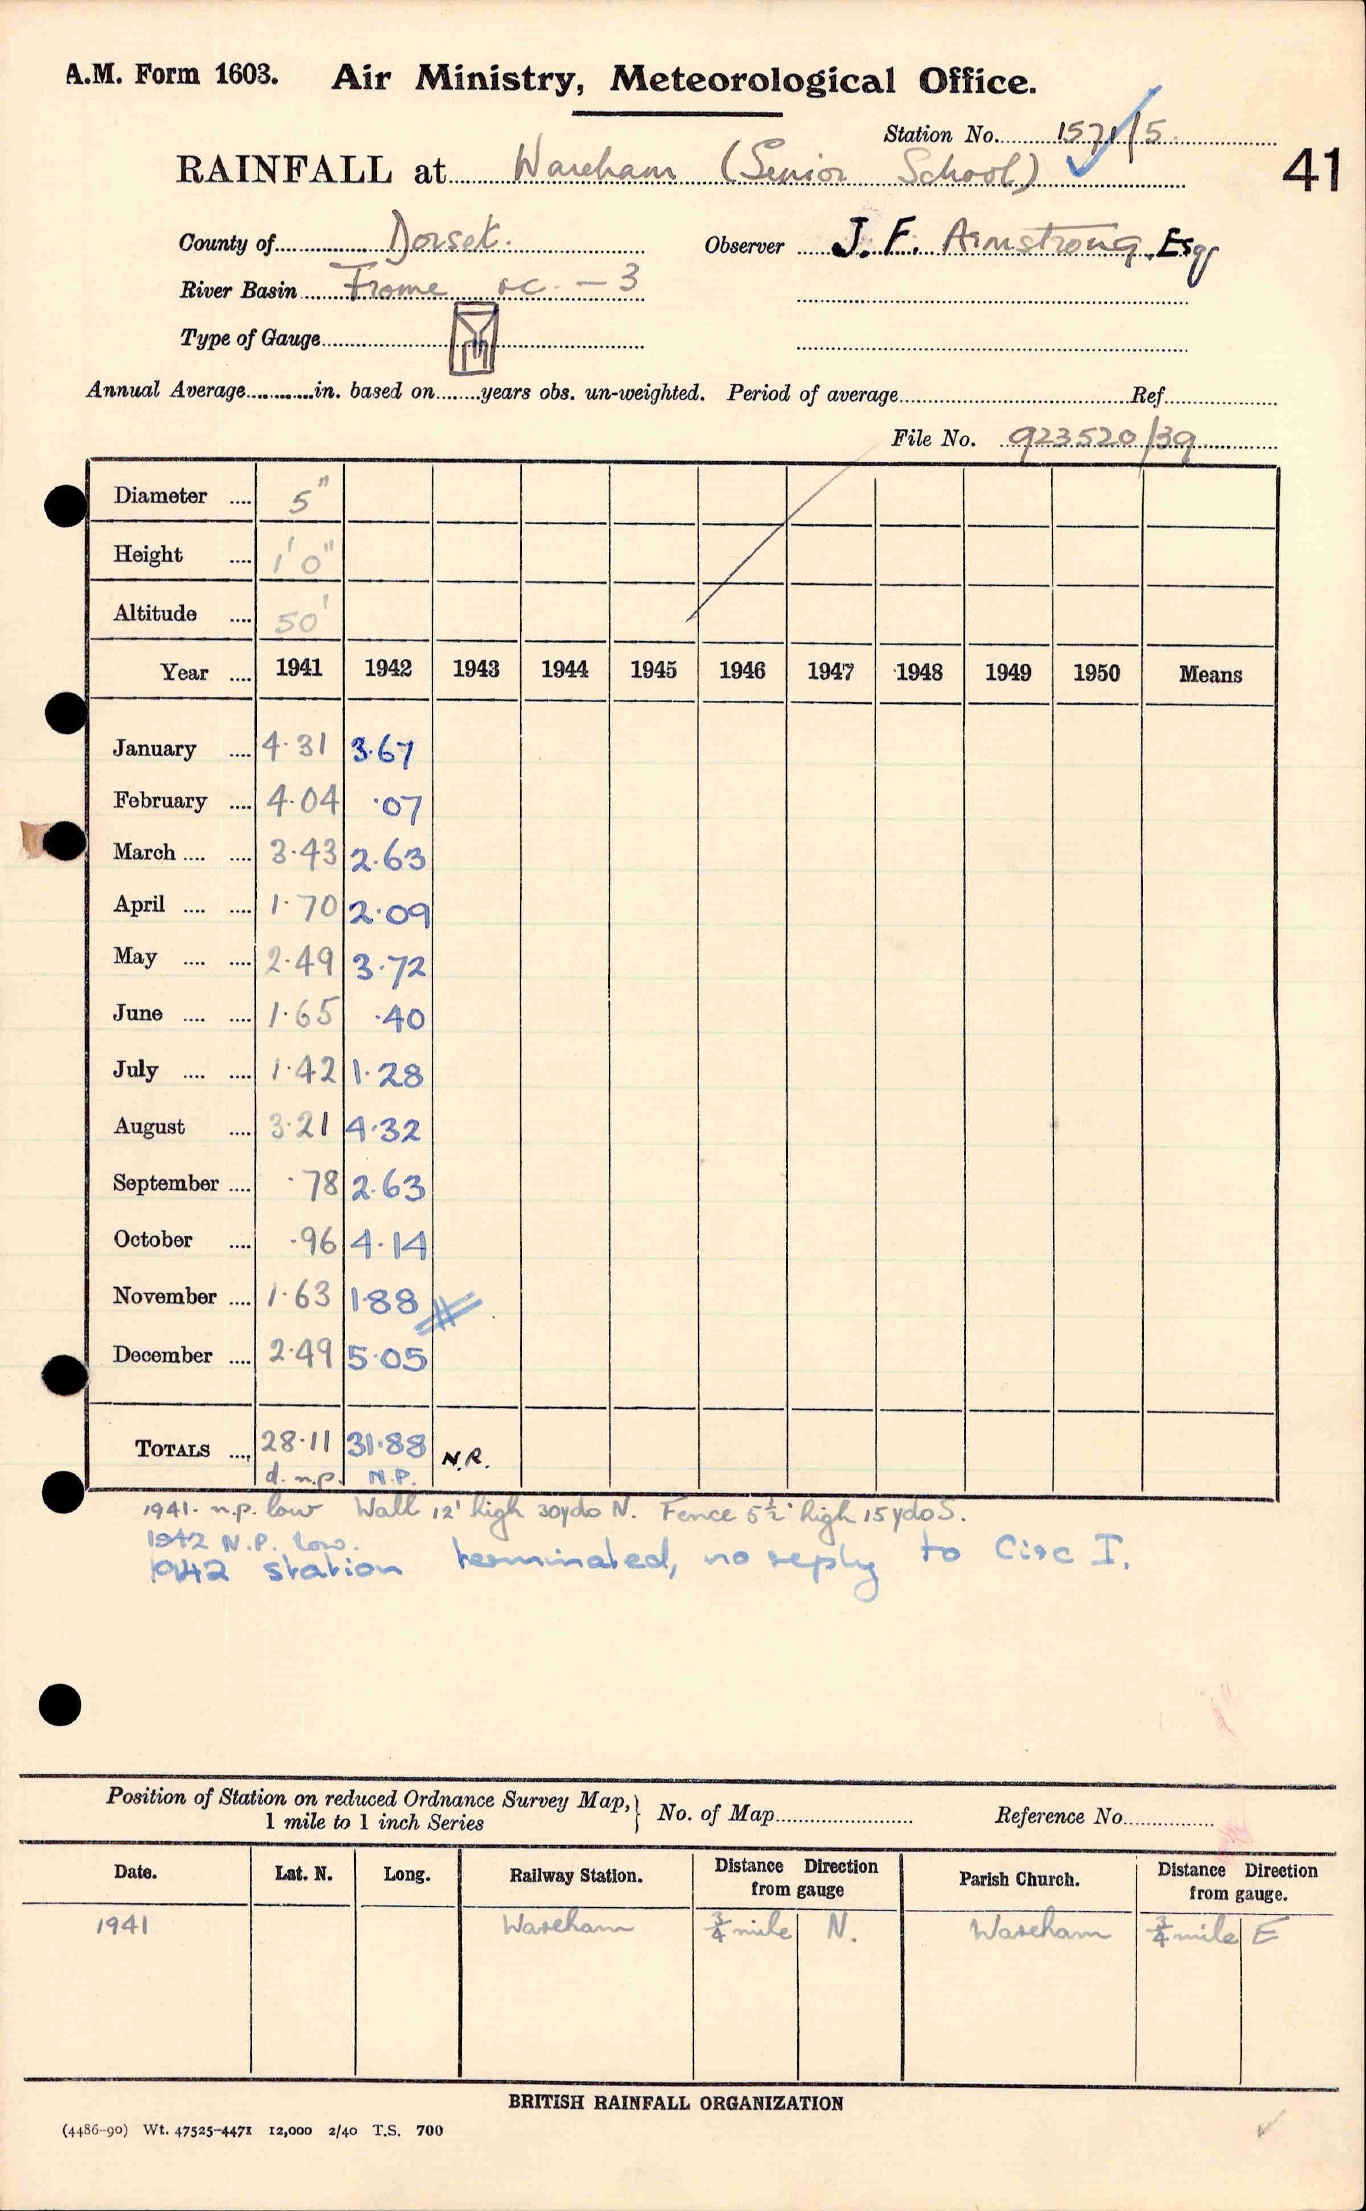 A.M. Form 1603. Air Ministry, Meteorological Office.
Station No. 1571/5
RAINFALL at Wareham (Senior School)
41
County of Dorset. Observer J. F. Armstrong, Esq
River Basin Frome &c. — 3
Type of Gauge
Annual Average in. based on years obs. un-weighted. Period of average Ref
File No. 923520/39
Diameter 5"
Height 1'0"
Altitude 50'
Year 1941 1942 1943 1944 1945 1946 1947 1948 1949 1950 Means
January 4.31 3.67
February 4.04 .07
March 3.43 2.63
April 1.70 2.09
May 2.49 3.72
June 1.65 .40
July 1.42 1.28
August 3.21 4.32
September .78 2.63
October .96 4.14
November 1.63 1.88
December 2.49 5.05
TOTALS 28.11 31.88 N.R.
d. n.p. N.P.
1941. n.p. low Wall 12' high 30yds N. Fence 5½' high 15yds S.
1942 N.P. low.
1942 station terminated, no reply to Circ I.
Position of Station on reduced Ordnance Survey Map, 1 mile to 1 inch Series } No. of Map Reference No.
Date. Lat. N. Long. Railway Station. Distance Direction from gauge Parish Church. Distance Direction from gauge.
1941 Wareham ¾ mile N. Wareham ¾ mile E
BRITISH RAINFALL ORGANIZATION
(4486-90) Wt. 47525-4471 12,000 2/40 T.S. 700